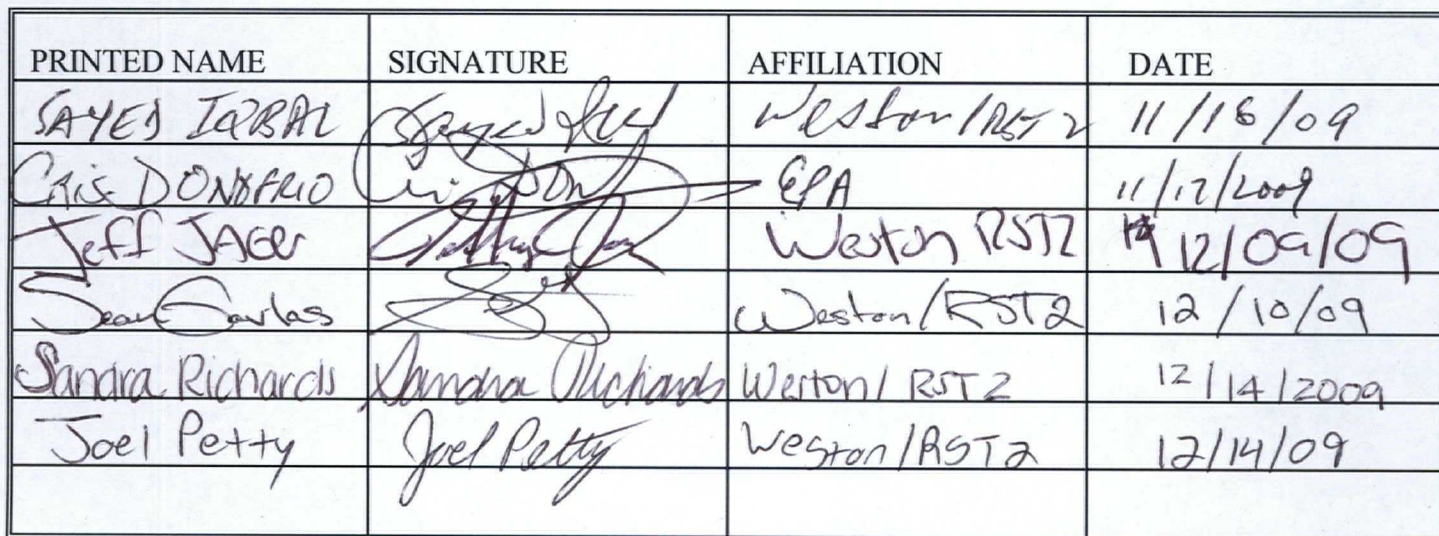 PRINTED NAME SIGNATURE AFFILIATION DATE
SAYED IQBAL Weston/RST2 11/16/09
CRIS DONOFRIO EPA 11/12/2009
Jeff JAGER Weston RST2 12/09/09
Sean Weston/RST2 12/10/09
Sandra Richards Sandra Richards Weston/ RST2 12/14/2009
Joel Petty Joel Petty Weston/RST2 12/14/09